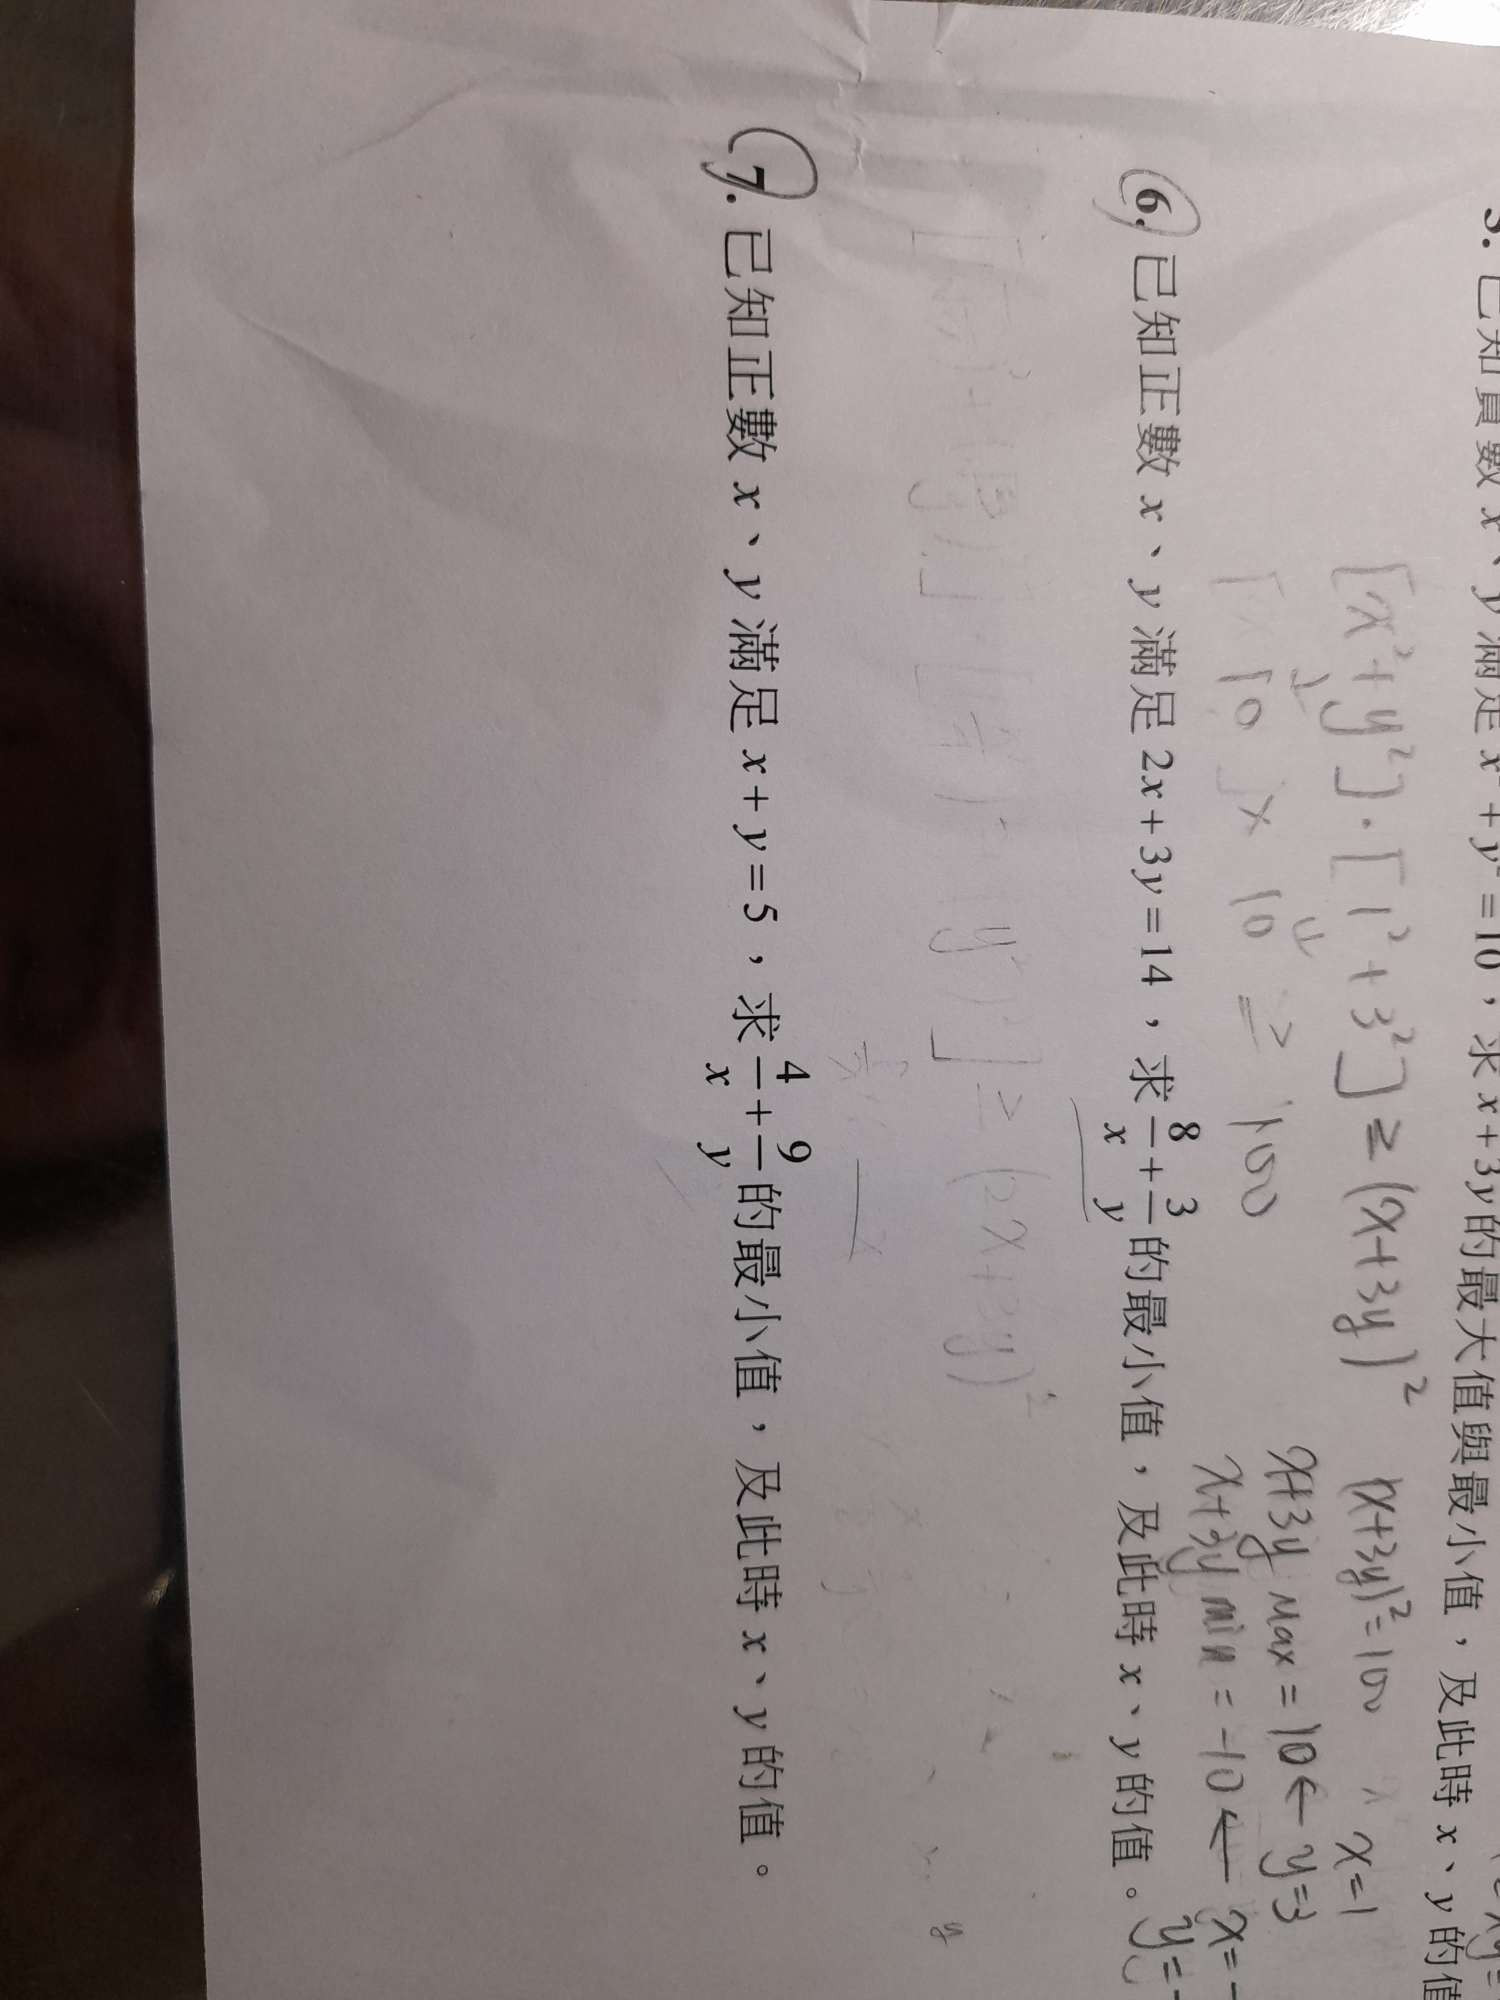 5. 已知實數 x、y 滿足 x² + y² = 10，求 x + 3y 的最大值與最小值，及此時 x、y 的值
[x²+y²]·[1²+3²] ≥ (x+3y)² (x+3y)²=100 x=1
10 x 10 ≥ 100 x+3y Max = 10 ← y=3
x+3y min = -10 ← x=-
y=-
6. 已知正數 x、y 滿足 2x + 3y = 14，求 8/x + 3/y 的最小值，及此時 x、y 的值。
≥ (2x+3y)²
7. 已知正數 x、y 滿足 x + y = 5，求 4/x + 9/y 的最小值，及此時 x、y 的值。